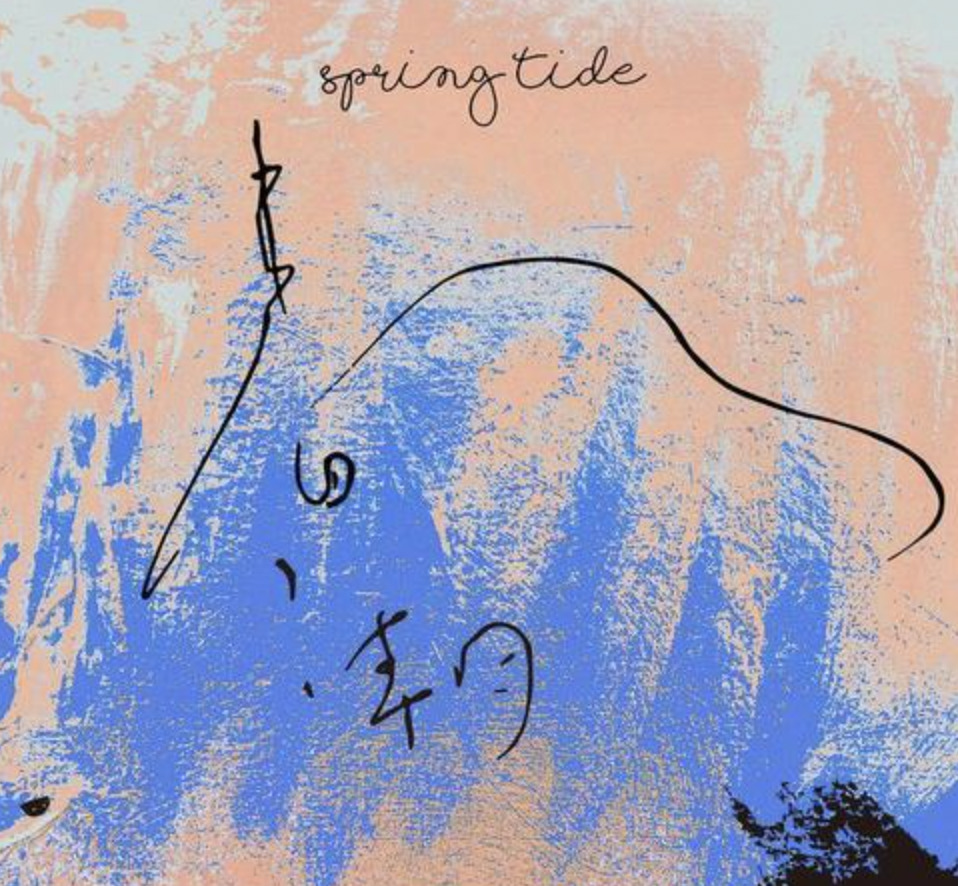 spring tide
春
潮